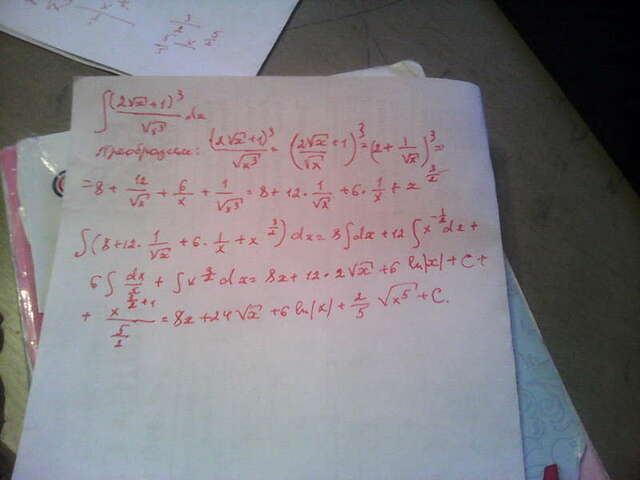 3
∫ (2√x+1)³/√x³ dx
преобразуем: (2√x+1)³/√x³ = (2√x+1/√x)³ = (2 + 1/√x)³ =
= 8 + 12/√x + 6/x + 1/√x³ = 8 + 12 · 1/√x + 6 · 1/x + x^(3/2)
∫ (8 + 12 · 1/√x + 6 · 1/x + x^(3/2)) dx = 8∫dx + 12 ∫ x^(-1/2) dx +
6 ∫ dx/x + ∫ x^(3/2) dx = 8x + 12 · 2√x + 6 ln|x| + C +
+ x^(3/2+1)/(5/2) = 8x + 24√x + 6 ln|x| + 2/5 √x⁵ + C.